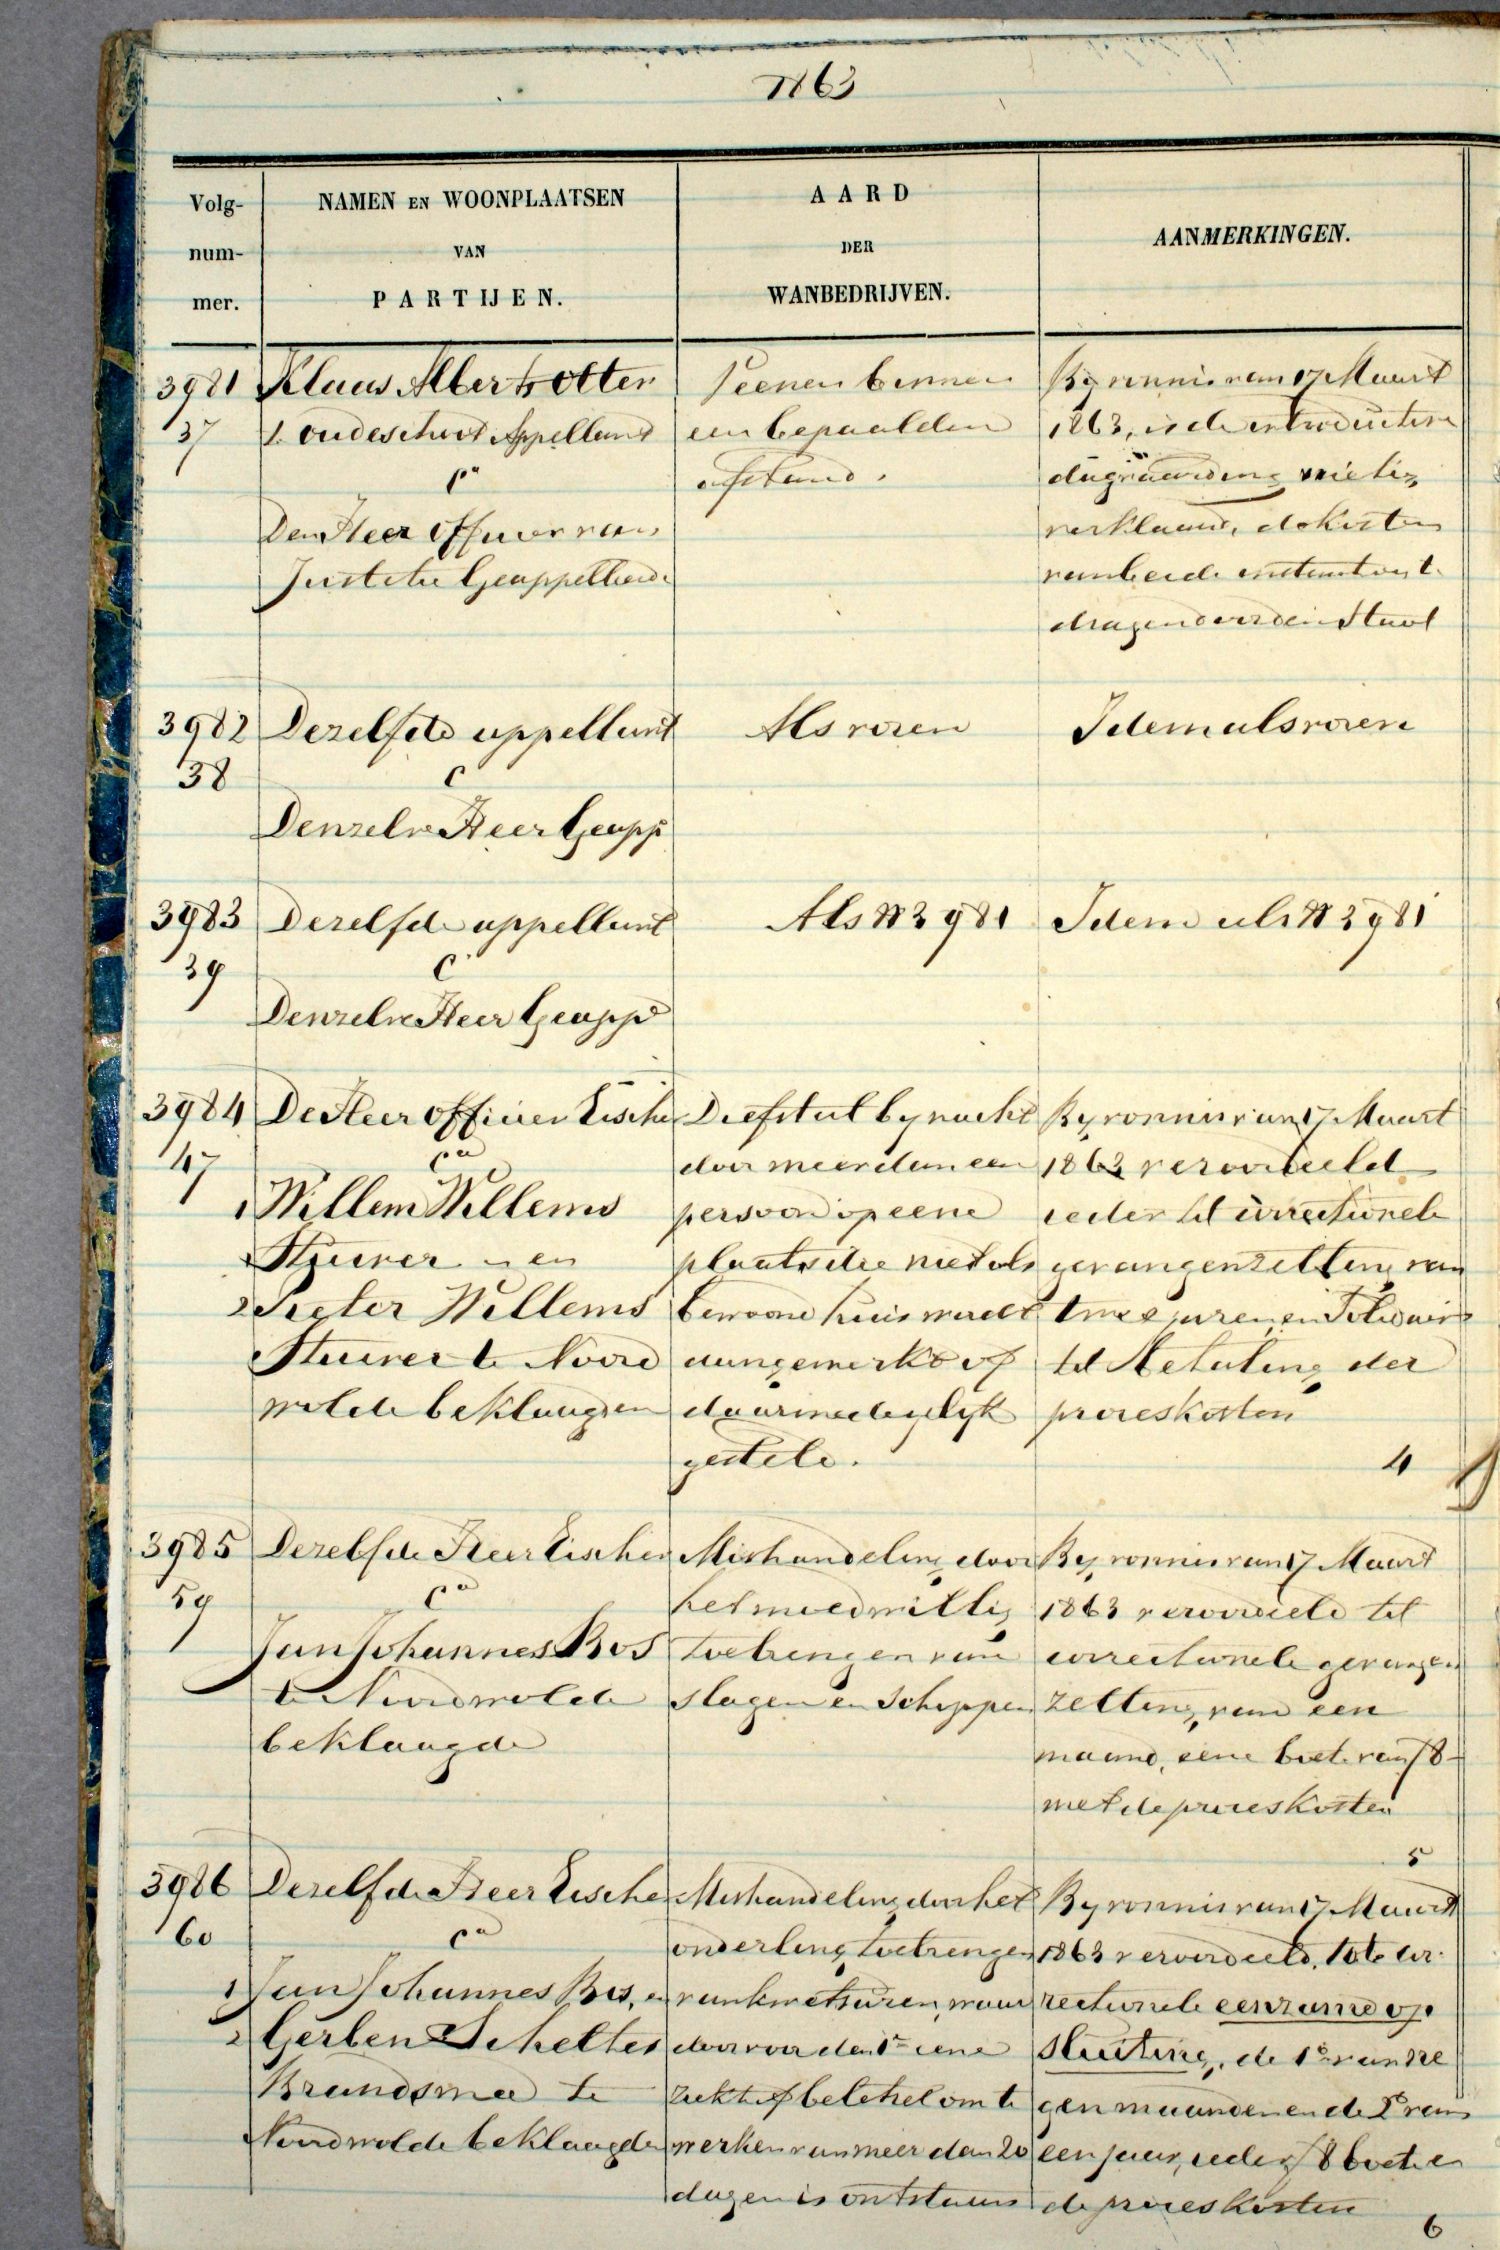 1863
Volg-
num-
mer.
NAMEN EN WOONPLAATSEN
VAN
PARTIJEN.
AARD
DER
WANBEDRIJVEN.
AANMERKINGEN.
3981
37
Klaas Alberts Otter
te oudeschoot Appellant
ca
Den Heer Officier van
Justitie Geappelleerde
Veenen binnen
een bepaalden
afstand.
By vonnis van 17 Maart
1863, is de introductive
dagvaarding nietig
verklaard, de kosten
van beide instantien te
dragen door den Staat
3982
38
Dezelfde appellant
c
Denzelve Heer Geapp
Als voren
Idem als voren
3983
39
Dezelfde appellant
c
Denzelve Heer Geappe
Als N 3981
Idem als N 3981
3984
47
De Heer officier Eischer
ca
1 Willem Willems
Stuiver en
2 Pieter Willems
Stuiver te Noord
wolde beklaagden
Diefstal by nacht
door meer dan een
persoon op eene
plaats die niet als
bewoond huis wordt
aangemerkt of
daarmede gelyk
gesteld.
By vonnis van 17 Maart
1863 veroordeeld
ieder tot correctionele
gevangenzetting van
twee jaren, en Solidair
tot betaling der
proceskosten
4
3985
59
Dezelfde Heer Eischer
ca
Jan Johannes Bos
te Noordwolde
beklaagde
Mishandeling door
het moedwillig
toebrengen van
slagen en Schoppen
By vonnis van 17 Maart
1863 veroordeeld tot
correctionele gevangen
zetting van een
maand, eene boete van f 8-
met de proceskosten
5
3986
60
Dezelfde Heer Eischer
ca
1 Jan Johannes Bos, en
2 Gerben Scheltes
Brandsma te
Noordwolde beklaagden
Mishandeling door het
onderling toebrengen
van kwetsuren, waar
door voor den 1e eene
ziekte of beletsel om te
werken van meer dan 20
dagen is ontstaan
By vonnis van 17 Maart
1863 veroordeeld, tot cor
rectionele eenzame op
sluiting, de 1e van ze
gen maanden en de 2e van
een jaar, ieder f 8 boete en
de proceskosten
6